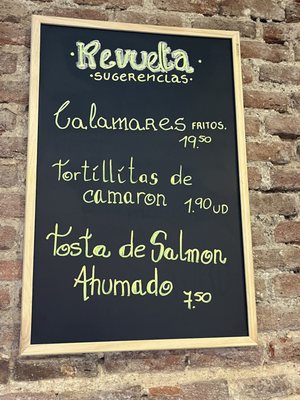 Revuelta
· SUGERENCIAS ·
Calamares FRITOS.
19.50
Tortillitas de
camaron 1.90 UD
Tosta de Salmon
Ahumado 7.50